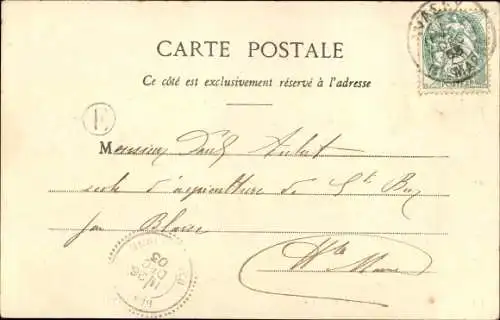 WASSY
CARTE POSTALE
Ce côté est exclusivement réservé à l'adresse
E
Monsieur Paul Aubert
école d'agriculture de St Bon
par Blaise
Hte Marne
26
DEC
03